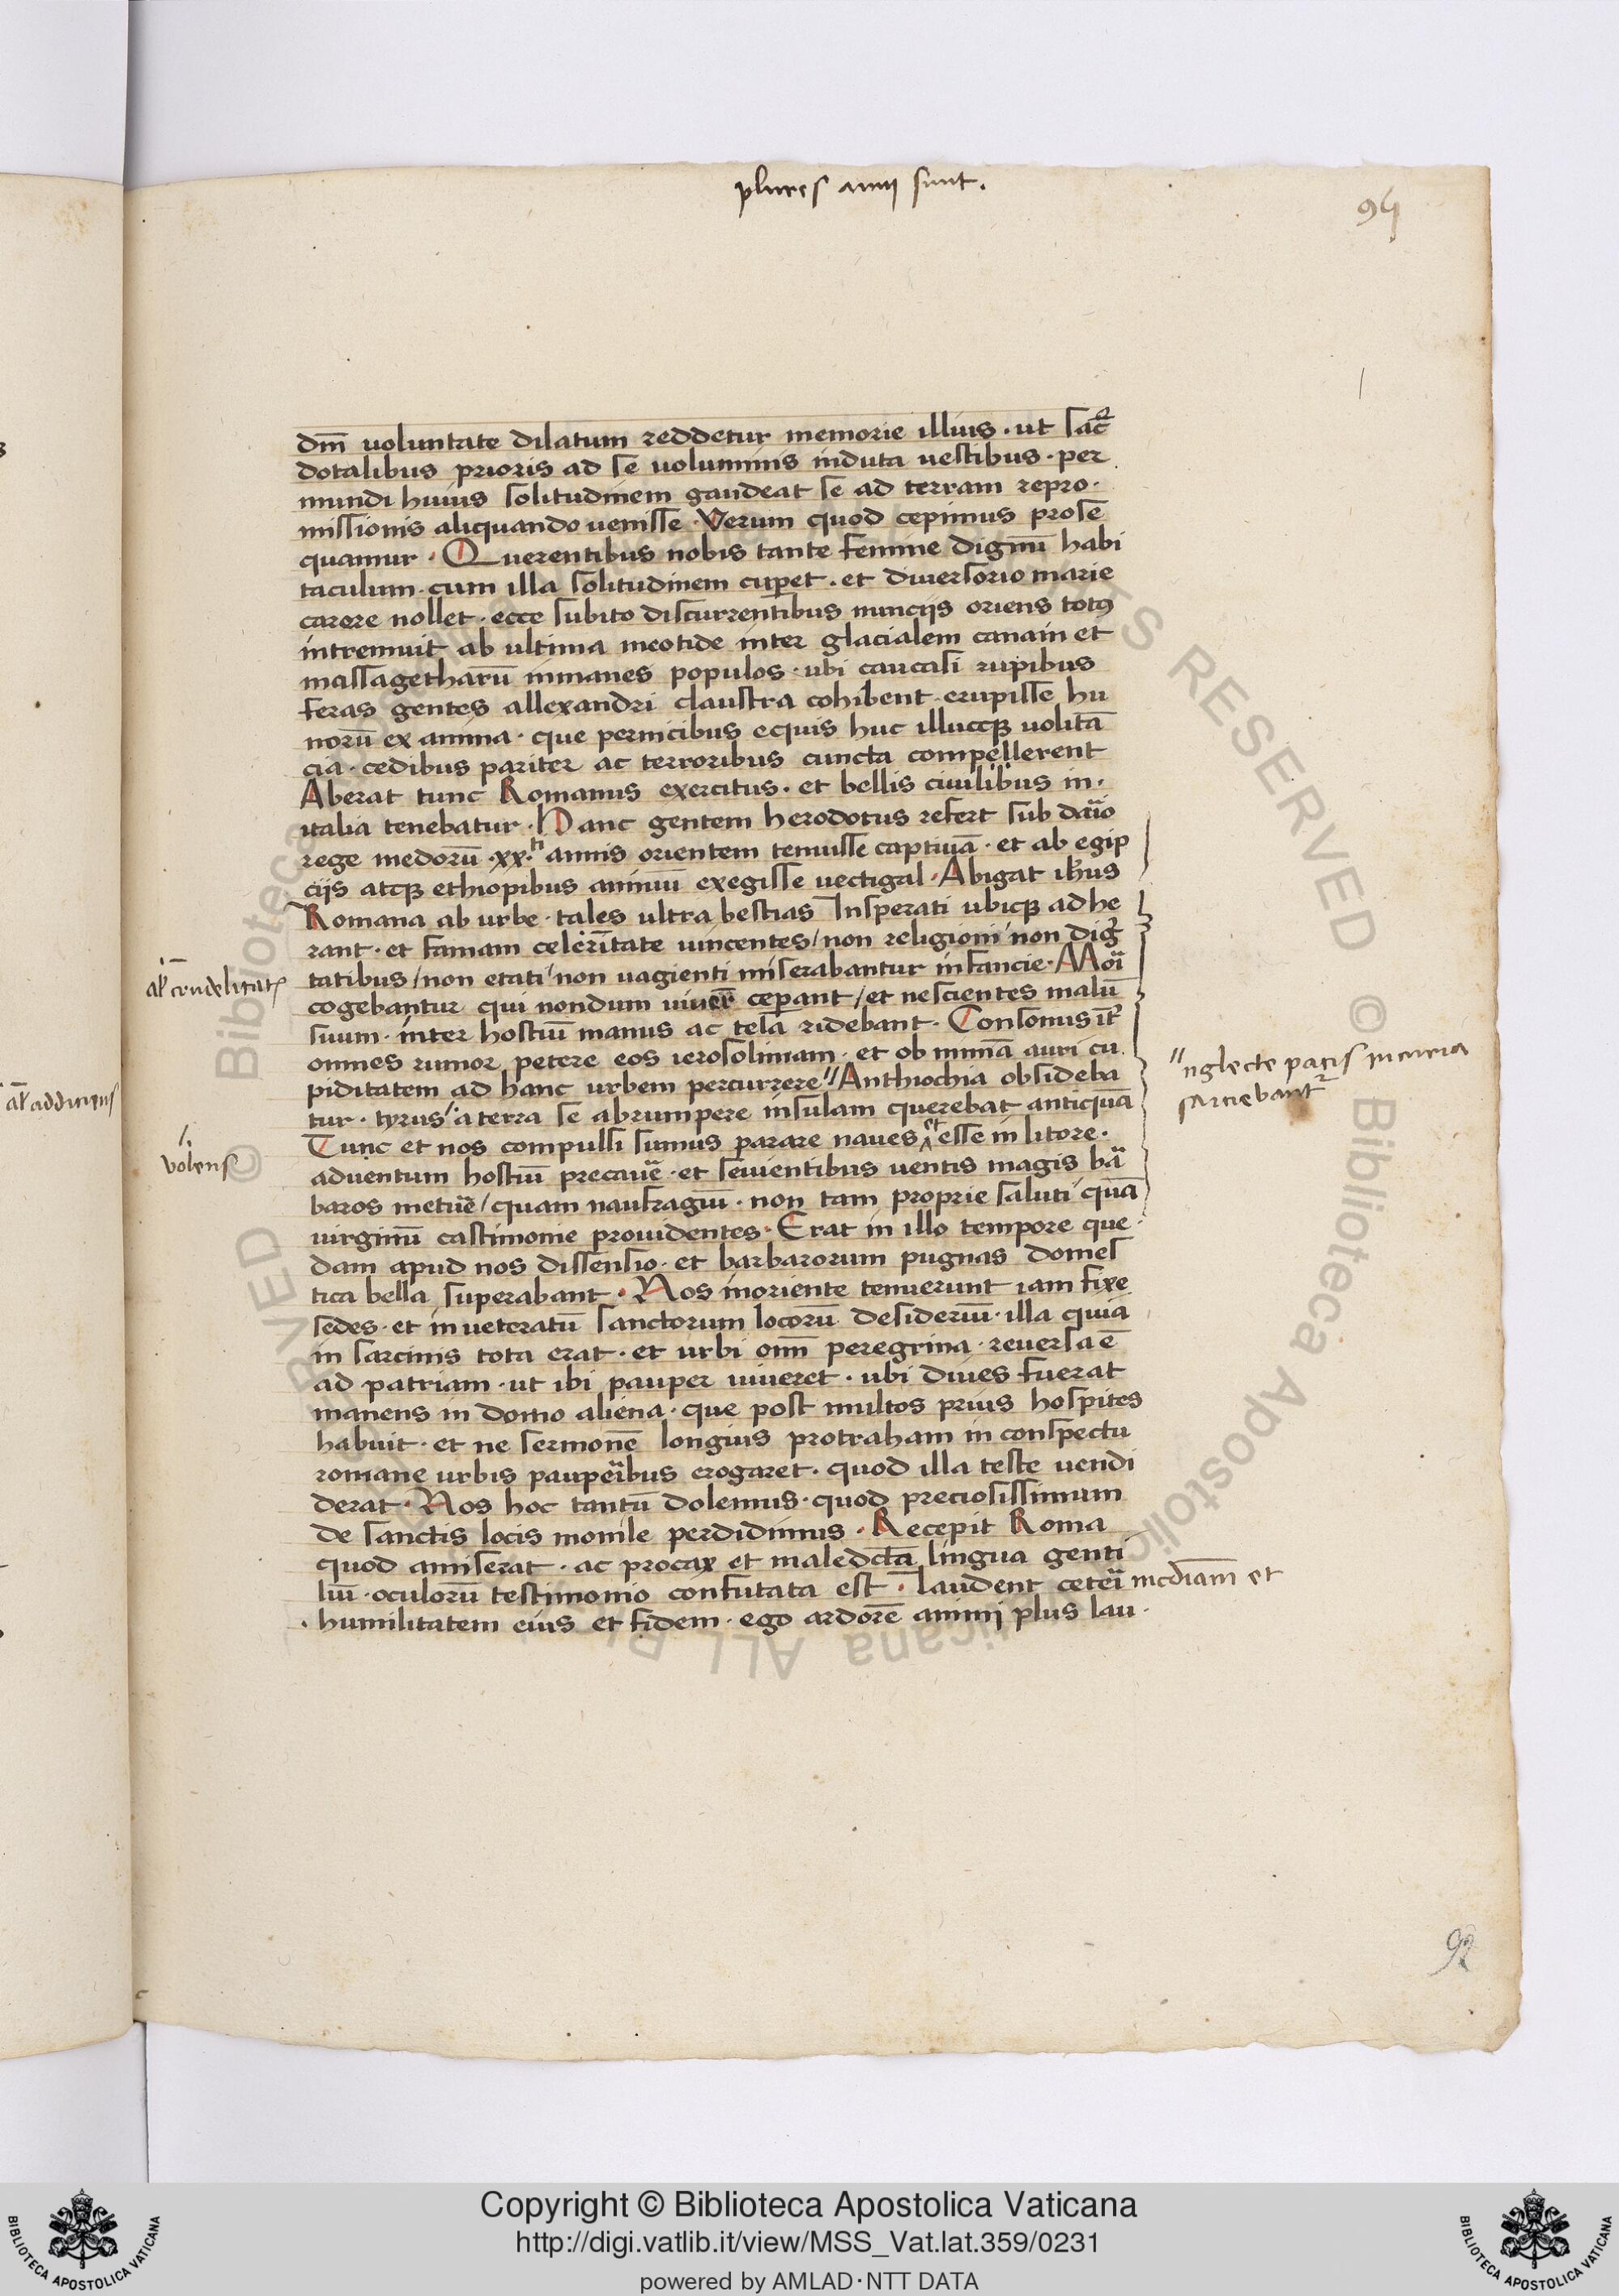 plures anni sunt.
94
dm̄ voluntate dilatum reddetur memorie illius · ut sac̄
dotalibus prioris ad se voluminis induta vestibus · per
mundi huius solitudinem gaudeat se ad terram repro·
missionis aliquando venisse · Verum quod cepimus prose
quamur · Querentibus nobis tante femine dignū habi
taculum · cum illa solitudinem cuperet · et diversorio marie
carere nollet · ecce subito discurrentibus nunciis oriens totꝰ
intremuit ab ultima meotide inter glacialem tanain et
massagetharū inmanes populos · ubi caucasi rupibus
feras gentes allexandri claustra cohibent · erupisse hu
norū examina · que pernicibus equis huc illucqꝫ volitā
cia · cedibus pariter ac terroribus cuncta compellerent
Aberat tunc Romanus exercitus · et bellis civilibus in·
italia tenebatur · Hanc gentem herodotus refert sub daīo
rege medorū ·xx·ti annis orientem tenuisse captivā · et ab egip
ciis atqꝫ ethiopibus annuū exegisse vectigal · Abigat ihꝰus
Romana ab urbe · tales ultra bestias Insperati ubiqꝫ adhe
rant · et famam celeritate vincentes / non religioni / non dig̅
tatibus / non etati / non vagienti miserabantur infancie · Mori
al̄ crudelitatꝭ
cogebantur qui nondum vivere ceperant / et nescientes malū
suum · inter hostiū manus ac tela ridebant · Consonus īt
omnes rumor petere eos ierosolimam · et ob nimiā auri cu
piditatem ad hanc urbem percurrere // Anthiochia obsideba
// neglecte pacis incuria
sarciebantur
al̄ adduciens
tur · tyrus / a terra se abrumpere insulam querebat antiquā
Tunc et nos compulsi sumus parare naves et esse in litore ·
/ volens
adventum hostiū precavē · et sevientibus ventis magis bā
baros metuē / quam naufragiū · non tam proprie saluti quā
virginū castimonie providentes · Erat in illo tempore que
dam apud nos dissensio · et barbarorum pugnas domes
tica bella superabant · Nos inoriente tenuerunt iam fixe
sedes · et inveteratū sanctorum locorū desideriū · illa quia
in sarcinis tota erat · et urbi om̄ī peregrina · reversa ē
ad patriam · ut ibi pauper viveret · ubi dives fuerat
manens in domo aliena · que post multos prius hospites
habuit · et ne sermonē longius protraham in conspectu
romane urbis pauperibus erogaret · quod illa teste vendi
derat · Nos hoc tantū dolemus · quod preciosissimum
de sanctis locis monile perdidimus · Recepit Roma
quod amiserat · ac procax et maledcta lingua genti
liū · oculorū testimonio confutata est · Laudent ceteri mcdiam̄ et
· humilitatem eius et fidem · ego ardorē animi plus lau·
92
Copyright © Biblioteca Apostolica Vaticana
http://digi.vatlib.it/view/MSS_Vat.lat.359/0231
powered by AMLAD·NTT DATA
BIBLIOTECA APOSTOLICA VATICANA
BIBLIOTECA APOSTOLICA VATICANA